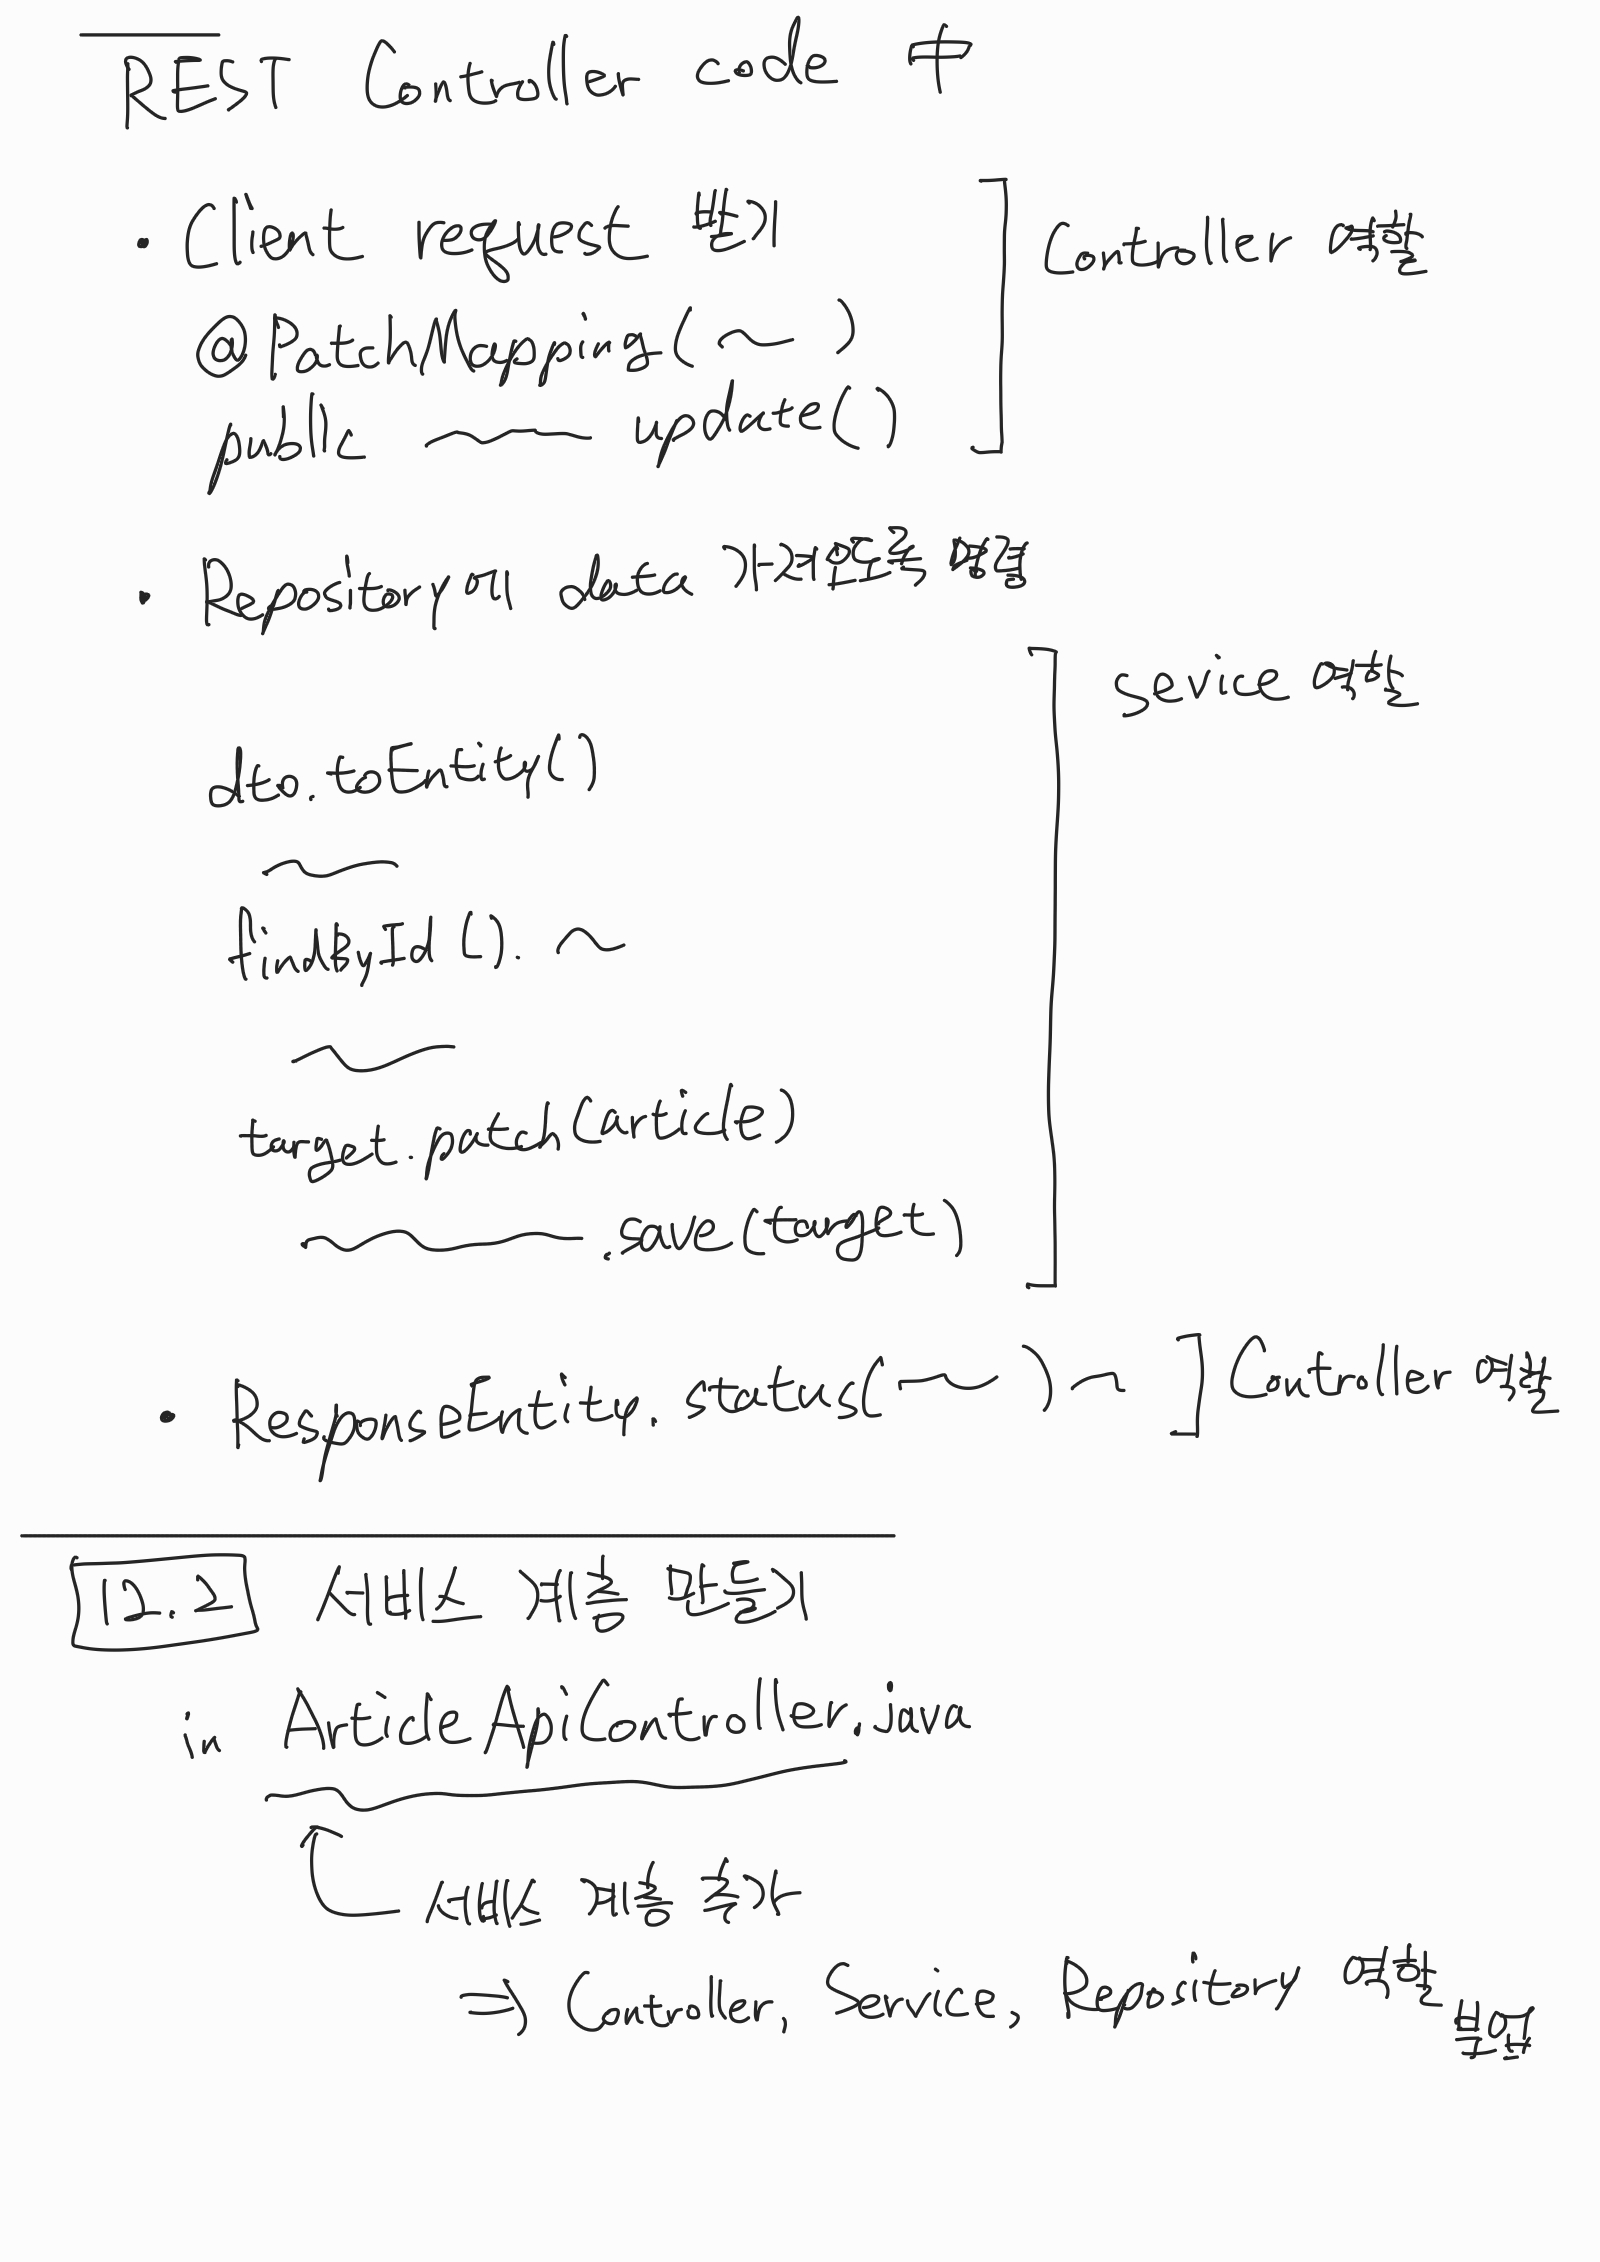 REST Controller code 中
• Client request 받기
Controller 역할
@PatchMapping(~)
public ~ update()
• Repository에 data 가져오도록 명령
Sevice 역할
dto.toEntity()
~
findById(). ~
~
target.patch(article)
~ .save(target)
• ResponseEntity.status(~)~ Controller 역할
12.2 서비스 계층 만들기
in ArticleApiController.java
서비스 계층 추가
⇒ Controller, Service, Repository 역할
분업